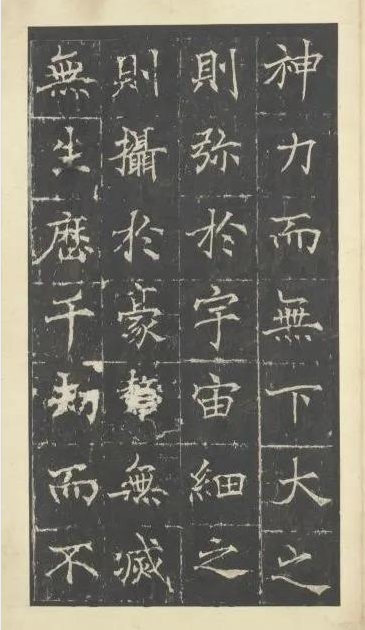 神力而無下大之
則弥於宇宙細之
則攝於豪釐無滅
無生歷千劫而不